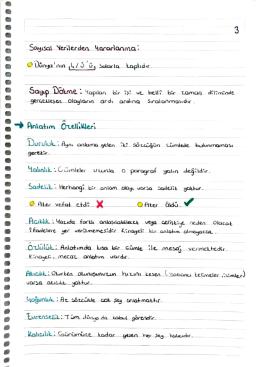 3
Sayısal Verilerden Yararlanma:
Dünya'nın 4/3'ü sularla kaplıdır.
Sayıp Dökme: Yapılan bir işi ve belli bir zaman diliminde
gerçekleşen olayların ardı ardına sıralanmasıdır.
Anlatım Özellikleri
Duruluk: Aynı anlama gelen iki sözcüğün cümlede bulunmaması
gerekir.
Yalınlık: Cümleler uzunsa o paragraf yalın değildir.
Sadelik: Herhangi bir anlam olayı varsa sadelik yoktur.
Ateş vefat etti. Ateş öldü.
Açıklık: Yazıda farklı anlaşılabilecek veya belirsizliğe neden olacak
ifadelere yer verilmemesidir. Kinayeli bir anlatım olmayacak.
Özlülük: Anlatımda kısa bir cümle ile mesaj vermektedir.
Kinayeli, mecaz anlatım vardır.
Akıcılık: Okurken okunuşumuzun hızını kesen (yabancı kelimeler, isimler)
varsa akıcılık yoktur.
Yoğunluk: Az sözcükle çok şey anlatmaktır.
Evrensellik: Tüm dünyada kabul görendir.
Kalıcılık: Günümüze kadar gelen her şey kalıcıdır.